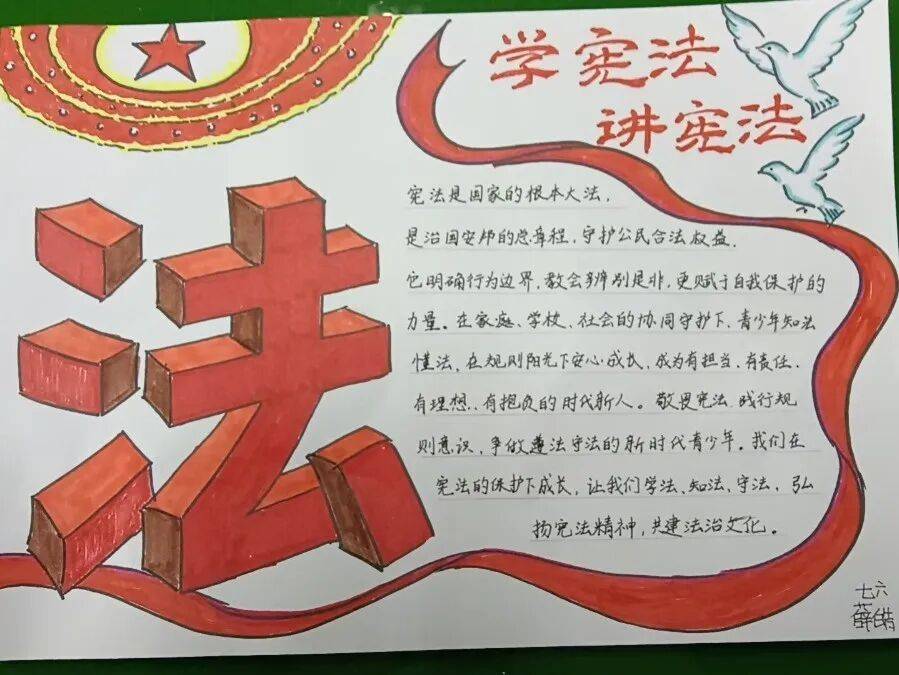 学宪法
讲宪法
法
宪法是国家的根本大法,
是治国安邦的总章程,守护公民合法权益.
它明确行为边界,教会辨别是非,更赋于自我保护的
力量。在家庭、学校、社会的协同守护下、青少年知法
懂法,在规则阳光下安心成长,成为有担当、有责任.
有理想、有抱负的时代新人。敬畏宪法 践行规
则意识,争做遵法守法的新时代青少年。我们在
宪法的保护下成长,让我们学法、知法、守法、弘
扬宪法精神,共建法治文化。
七六
薛皓